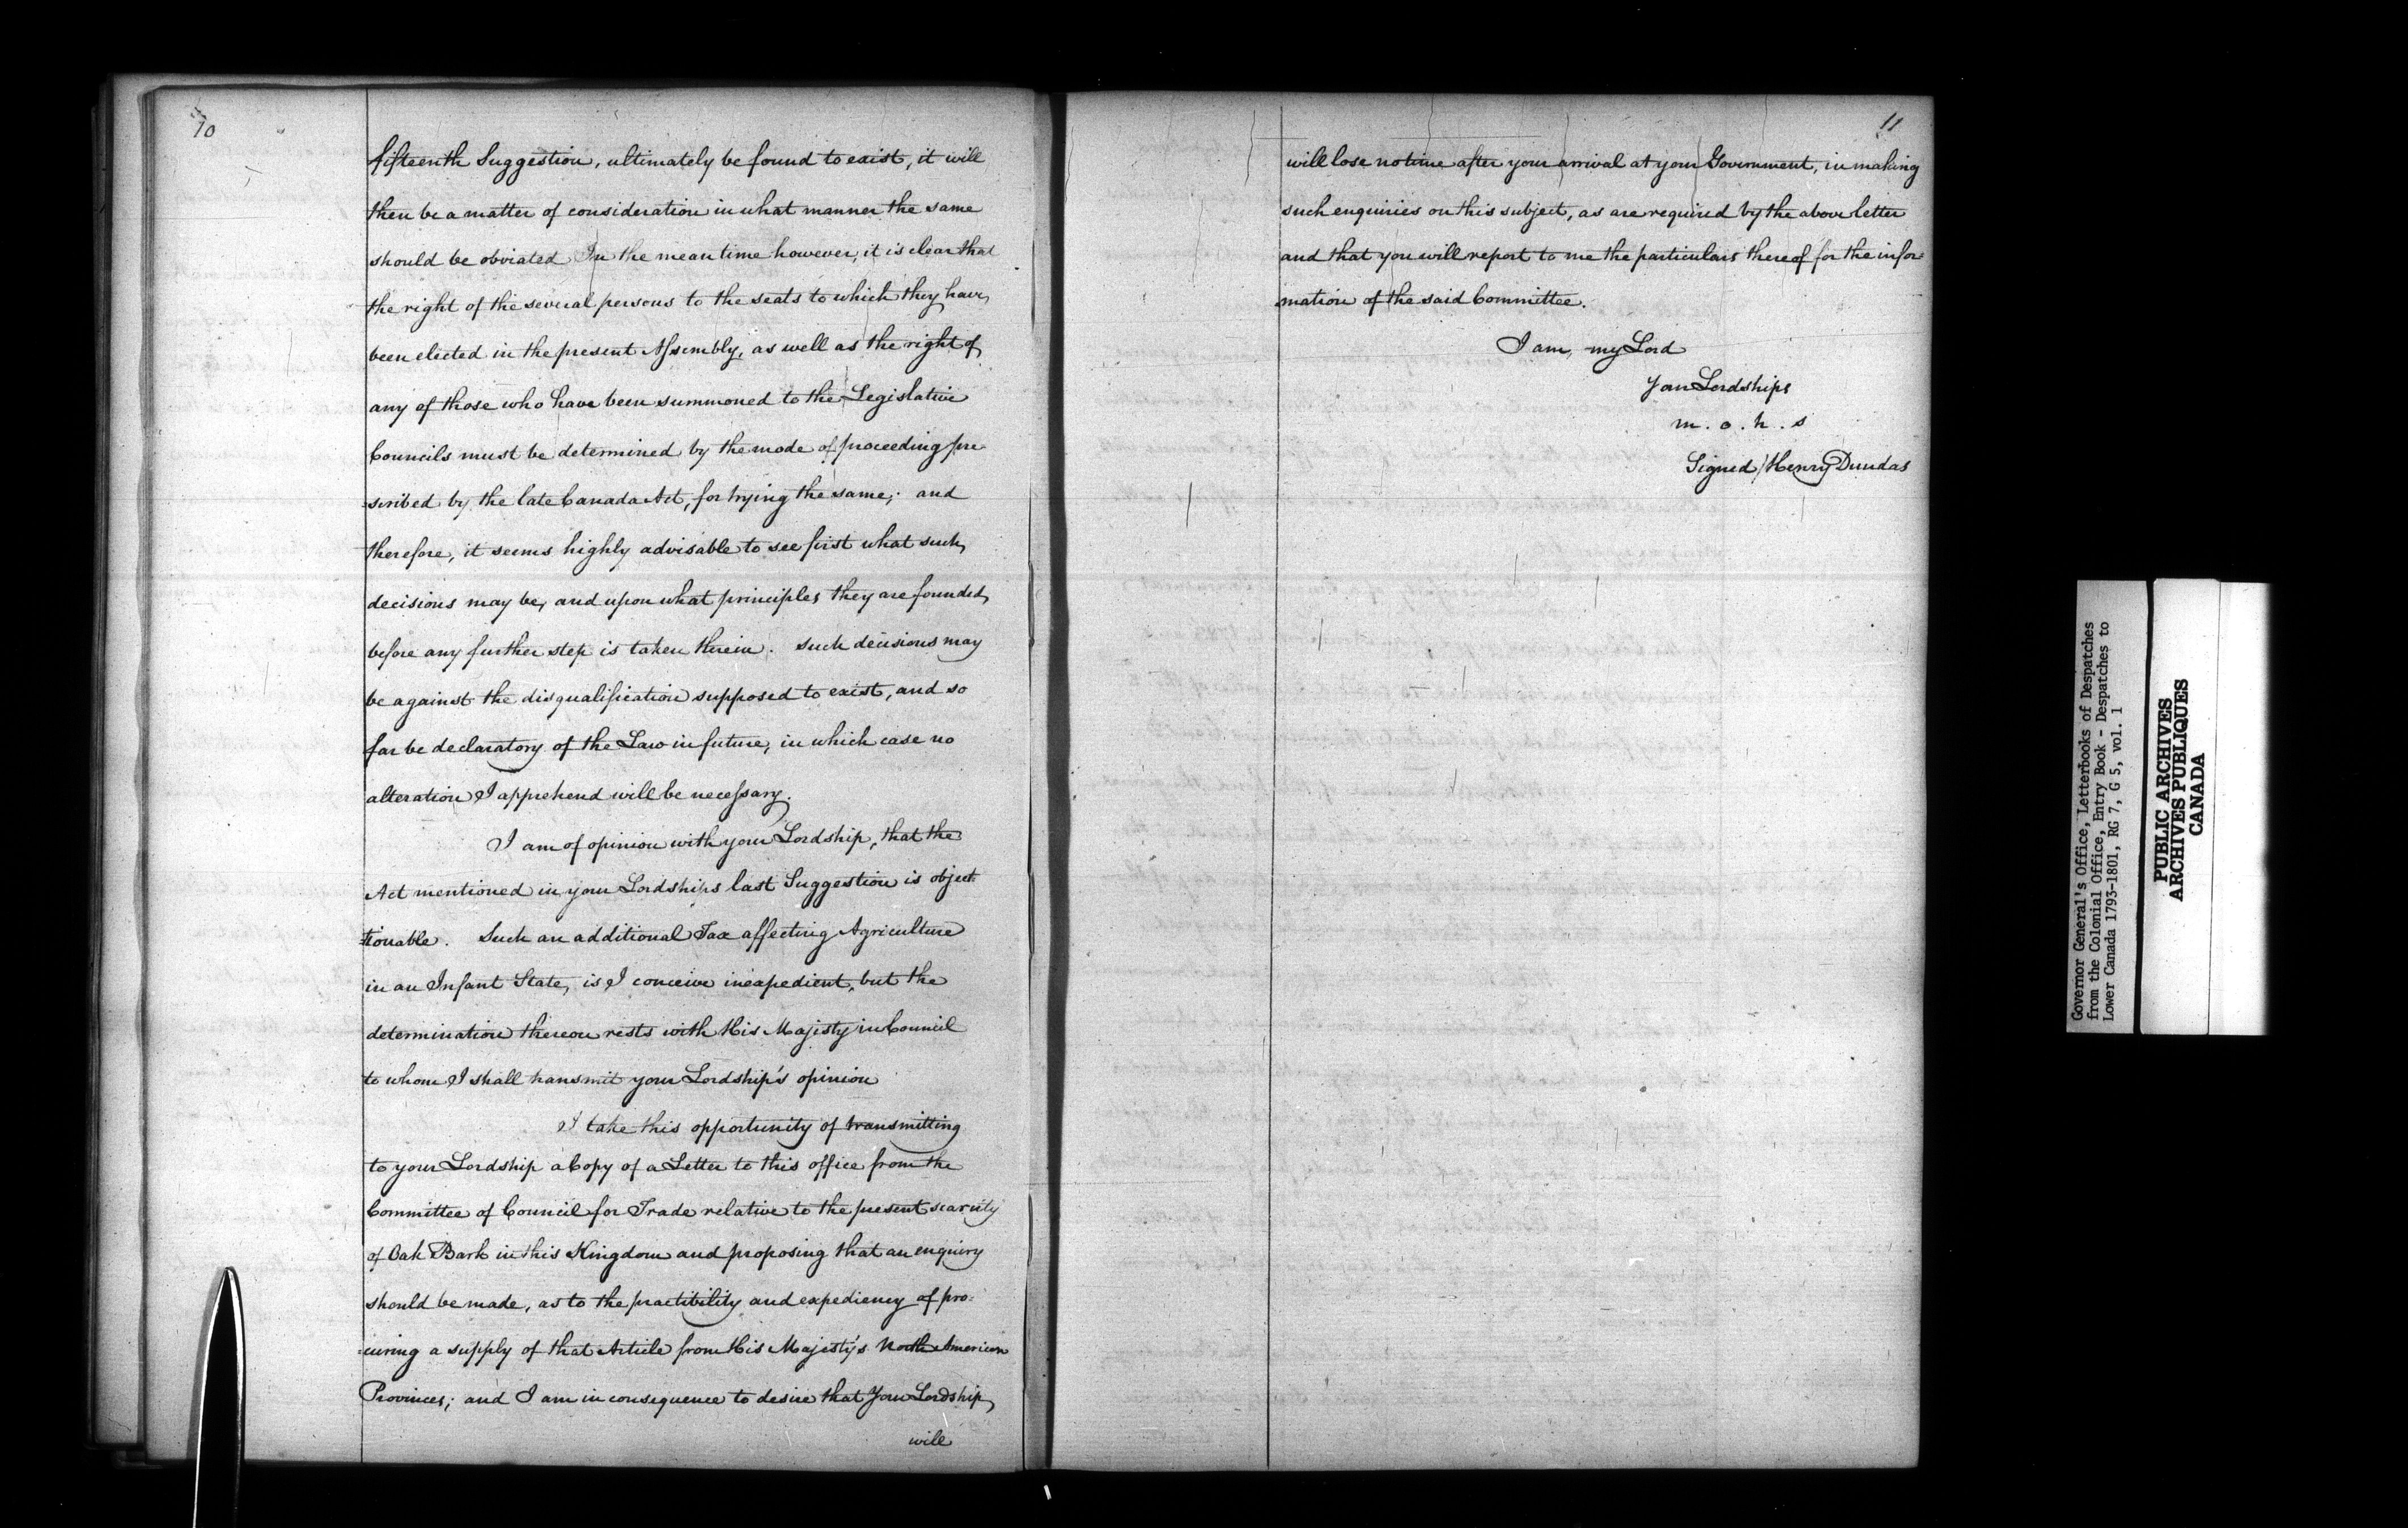 10
fifteenth Suggestion, ultimately be found to exist, it will
then be a matter of consideration in what manner the same
should be obviated In the mean time however, it is clear that
the right of the several persons to the seats to which they have
been elected in the present Assembly, as well as the right of
any of those who have been summoned to the Legislative
Councils must be determined by the mode of proceeding pre
=scribed by the late Canada Act, for trying the same; and
therefore, it seems highly advisable to see first what such
decisions may be, and upon what principles they are founded,
before any further step is taken therein. Such decisions may
be against the disqualification supposed to exist, and so
far be declaratory of the Law in future, in which case no
alteration I apprehend will be necessary.
I am of opinion with your Lordship, that the
Act mentioned in your Lordships last Suggestion is object
=tionable. Such an additional Tax affecting Agriculture
in an Infant State, is I conceive inexpedient, but the
determination thereon rests with His Majesty in Council
to whom I shall transmit your Lordship's opinion
I take this opportunity of transmitting
to your Lordship a Copy of a Letter to this office from the
Committee of Council for Trade relative to the present scarcity
of Oak Bark in this Kingdom and proposing that an enquiry
should be made, as to the practibility and expediency of pro=
=curing a supply of that Article from His Majesty's North American
Provinces; and I am in consequence to desire that Your Lordship,
will
11
will lose no time after your arrival at your Government, in making
such enquiries on this subject, as are required by the above letter
and that you will report to me the particulars thereof for the infor=
mation of the said Committee.
I am, my Lord
Your Lordships
m. o. h. s
Signed / Henry Dundas
Governor General's Office, Letterbooks of Despatches
from the Colonial Office, Entry Book - Despatches to
Lower Canada 1793-1801, RG 7, G 5, vol. 1
PUBLIC ARCHIVES
ARCHIVES PUBLIQUES
CANADA